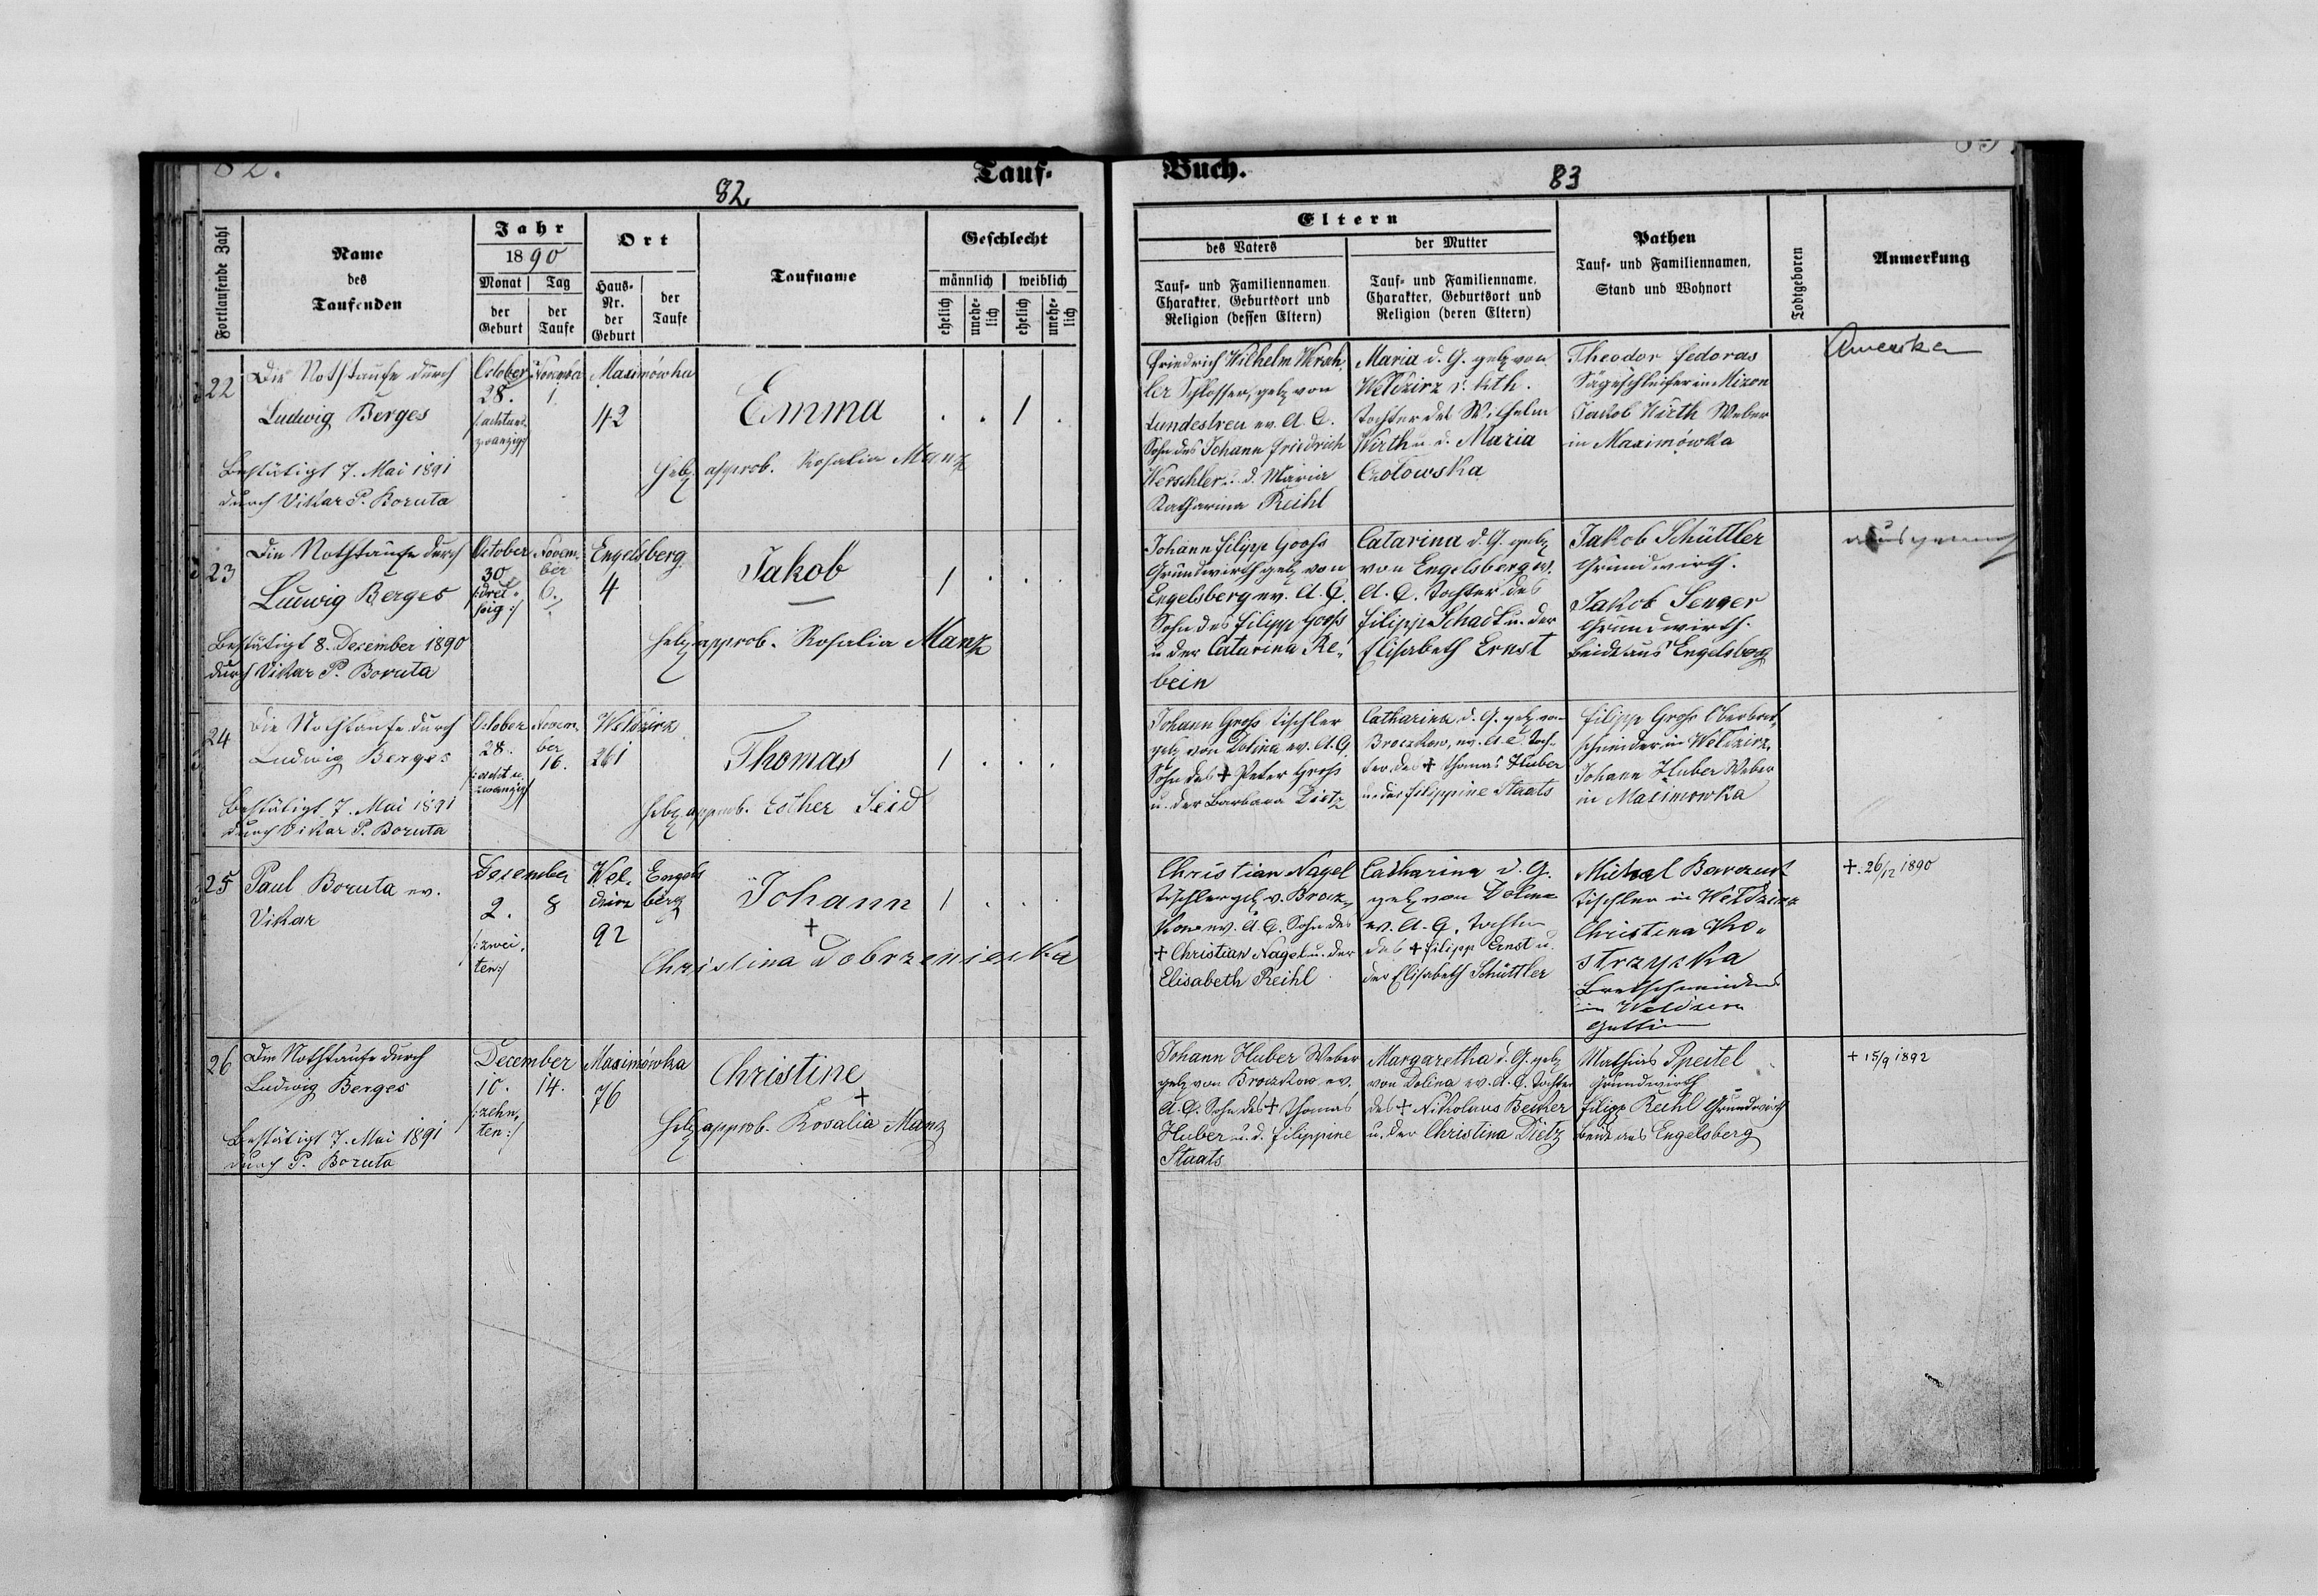 82.
82
Tauf-
Fortlaufende Zahl
Name
des
Taufenden
Jahr
1890
Monat
Tag
der
Geburt
der
Taufe
Ort
Haus-
Nr.
der
Geburt
der
Taufe
Taufname
Geschlecht
männlich
weiblich
ehelich
unehe-
lich
ehelich
unehe-
lich
22
Die Nothtaufe durch
Ludwig Berges
Bestätigt 7. Mai 1891
durch Vikar P. Boruta
October
28.
/: achtund
zwanzig :/
November
1.
Maximówka
42
Emma
. . 1 .
Heb. approb. Rosalia Manz
23
Die Nothtaufe durch
Ludwig Berges
Bestätigt 8. Dezember 1890
durch Vikar P. Boruta
October
30
/: drei-
ßig :/
Novem-
ber
6.
Engelsberg
4
Jakob
1 . . .
Heb. approb. Rosalia Manz
24
Die Nothtaufe durch
Ludwig Berges
Bestätigt 7. Mai 1891
durch Vikar P. Boruta
October
28.
/: acht u.
zwanzig :/
Novem-
ber
16.
Weldzirz
261
Thomas
1 . . .
Heb. approb. Esther Seid
25
Paul Boruta ev.
Vikar
Dezember
2. 8
/: zwei-
ten :/
Wel-
dzirz
92
Engels
berg
Johann
+
1 . . .
Christina Dobrzeniecka
26
Die Nothtaufe durch
Ludwig Berges
Bestätigt 7. Mai 1891
durch P. Boruta
December
10. 14.
/: zehn-
ten :/
Maximówka
76
Christine
+
Heb. approb. Rosalia Manz
Buch.
83
Eltern
des Vaters
Tauf- und Familiennamen,
Charakter, Geburtsort und
Religion (dessen Eltern)
der Mutter
Tauf- und Familienname,
Charakter, Geburtsort und
Religion (deren Eltern)
Pathen
Tauf- und Familiennamen,
Stand und Wohnort
Todtgeboren
Anmerkung
Friedrich Wilhelm
Schlosser, geb. von
Landestreu ev. A. C.
Sohn des Johann Friedrich
Werschler u. d. Maria
Katharina Reihl
Maria d. G. geb. von
Weldzirz r. kth.
Tochter des Wilhelm
Wirth u. d. Maria
Czołowska
Theodor Fedoras
in Mizon
Jakob Wirth Weber
in Maximówka
Amerika
Johann Filipp Gooss
Grundwirth geb. von
Engelsberg ev. A. C.
Sohn des Filipp Gooss
u. der Catarina Re-
bein
Catarina d. G. geb.
von Engelsberg ev.
A. C. Tochter des
Filipp Schadt u. der
Elisabeth Ernst
Jakob Schüttler
Grundwirth.
Jakob Senger
Grundwirth.
beide aus Engelsberg
Johann Gross Tischler
geb. von Dolina ev. A. C.
Sohn des + Peter Gross
u. der Barbara Dietz
Catharina d. G. geb. von
Broczkow, ev. A. C. Toch-
ter des + Thomas Huber
u. der Filippine Staats
Filipp Gross Oberbret-
schneider in Weldzirz
Johann Huber Weber
in Maximowka
Christian Nagel
Tischler geb. v. Brocz-
kow ev. A. C. Sohn des
+ Christian Nagel u. der
Elisabeth Reihl
Catharina d. G.
geb. von Dolina
ev. A. C. Tochter
des + Filipp Ernst u.
der Elisabeth Schüttler
Michael
Tischler in Weldzirz
Christina Ko-
strzycka
Bretschneiders
in Weldzirz
Gattin
+. 26/12 1890
Johann Huber Weber
geb. von Broczkow ev.
A. C. Sohn des + Thomas
Huber u. d. Filippine
Staats
Margaretha d. G. geb.
von Dolina ev. A. C. Tochter
des + Nikolaus Becker
u. der Christina Dietz
Mathias Speitel
Grundwirth
Filipp Reihl Grundwirth
beide aus Engelsberg
+ 15/9 1892